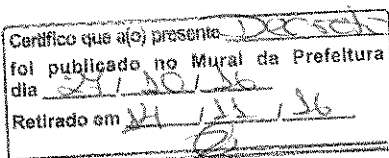 Certifico que a(o) presente Decreto
foi publicado no Mural da Prefeitura
dia 27 / 10 / 16
Retirado em 14 / 11 / 16